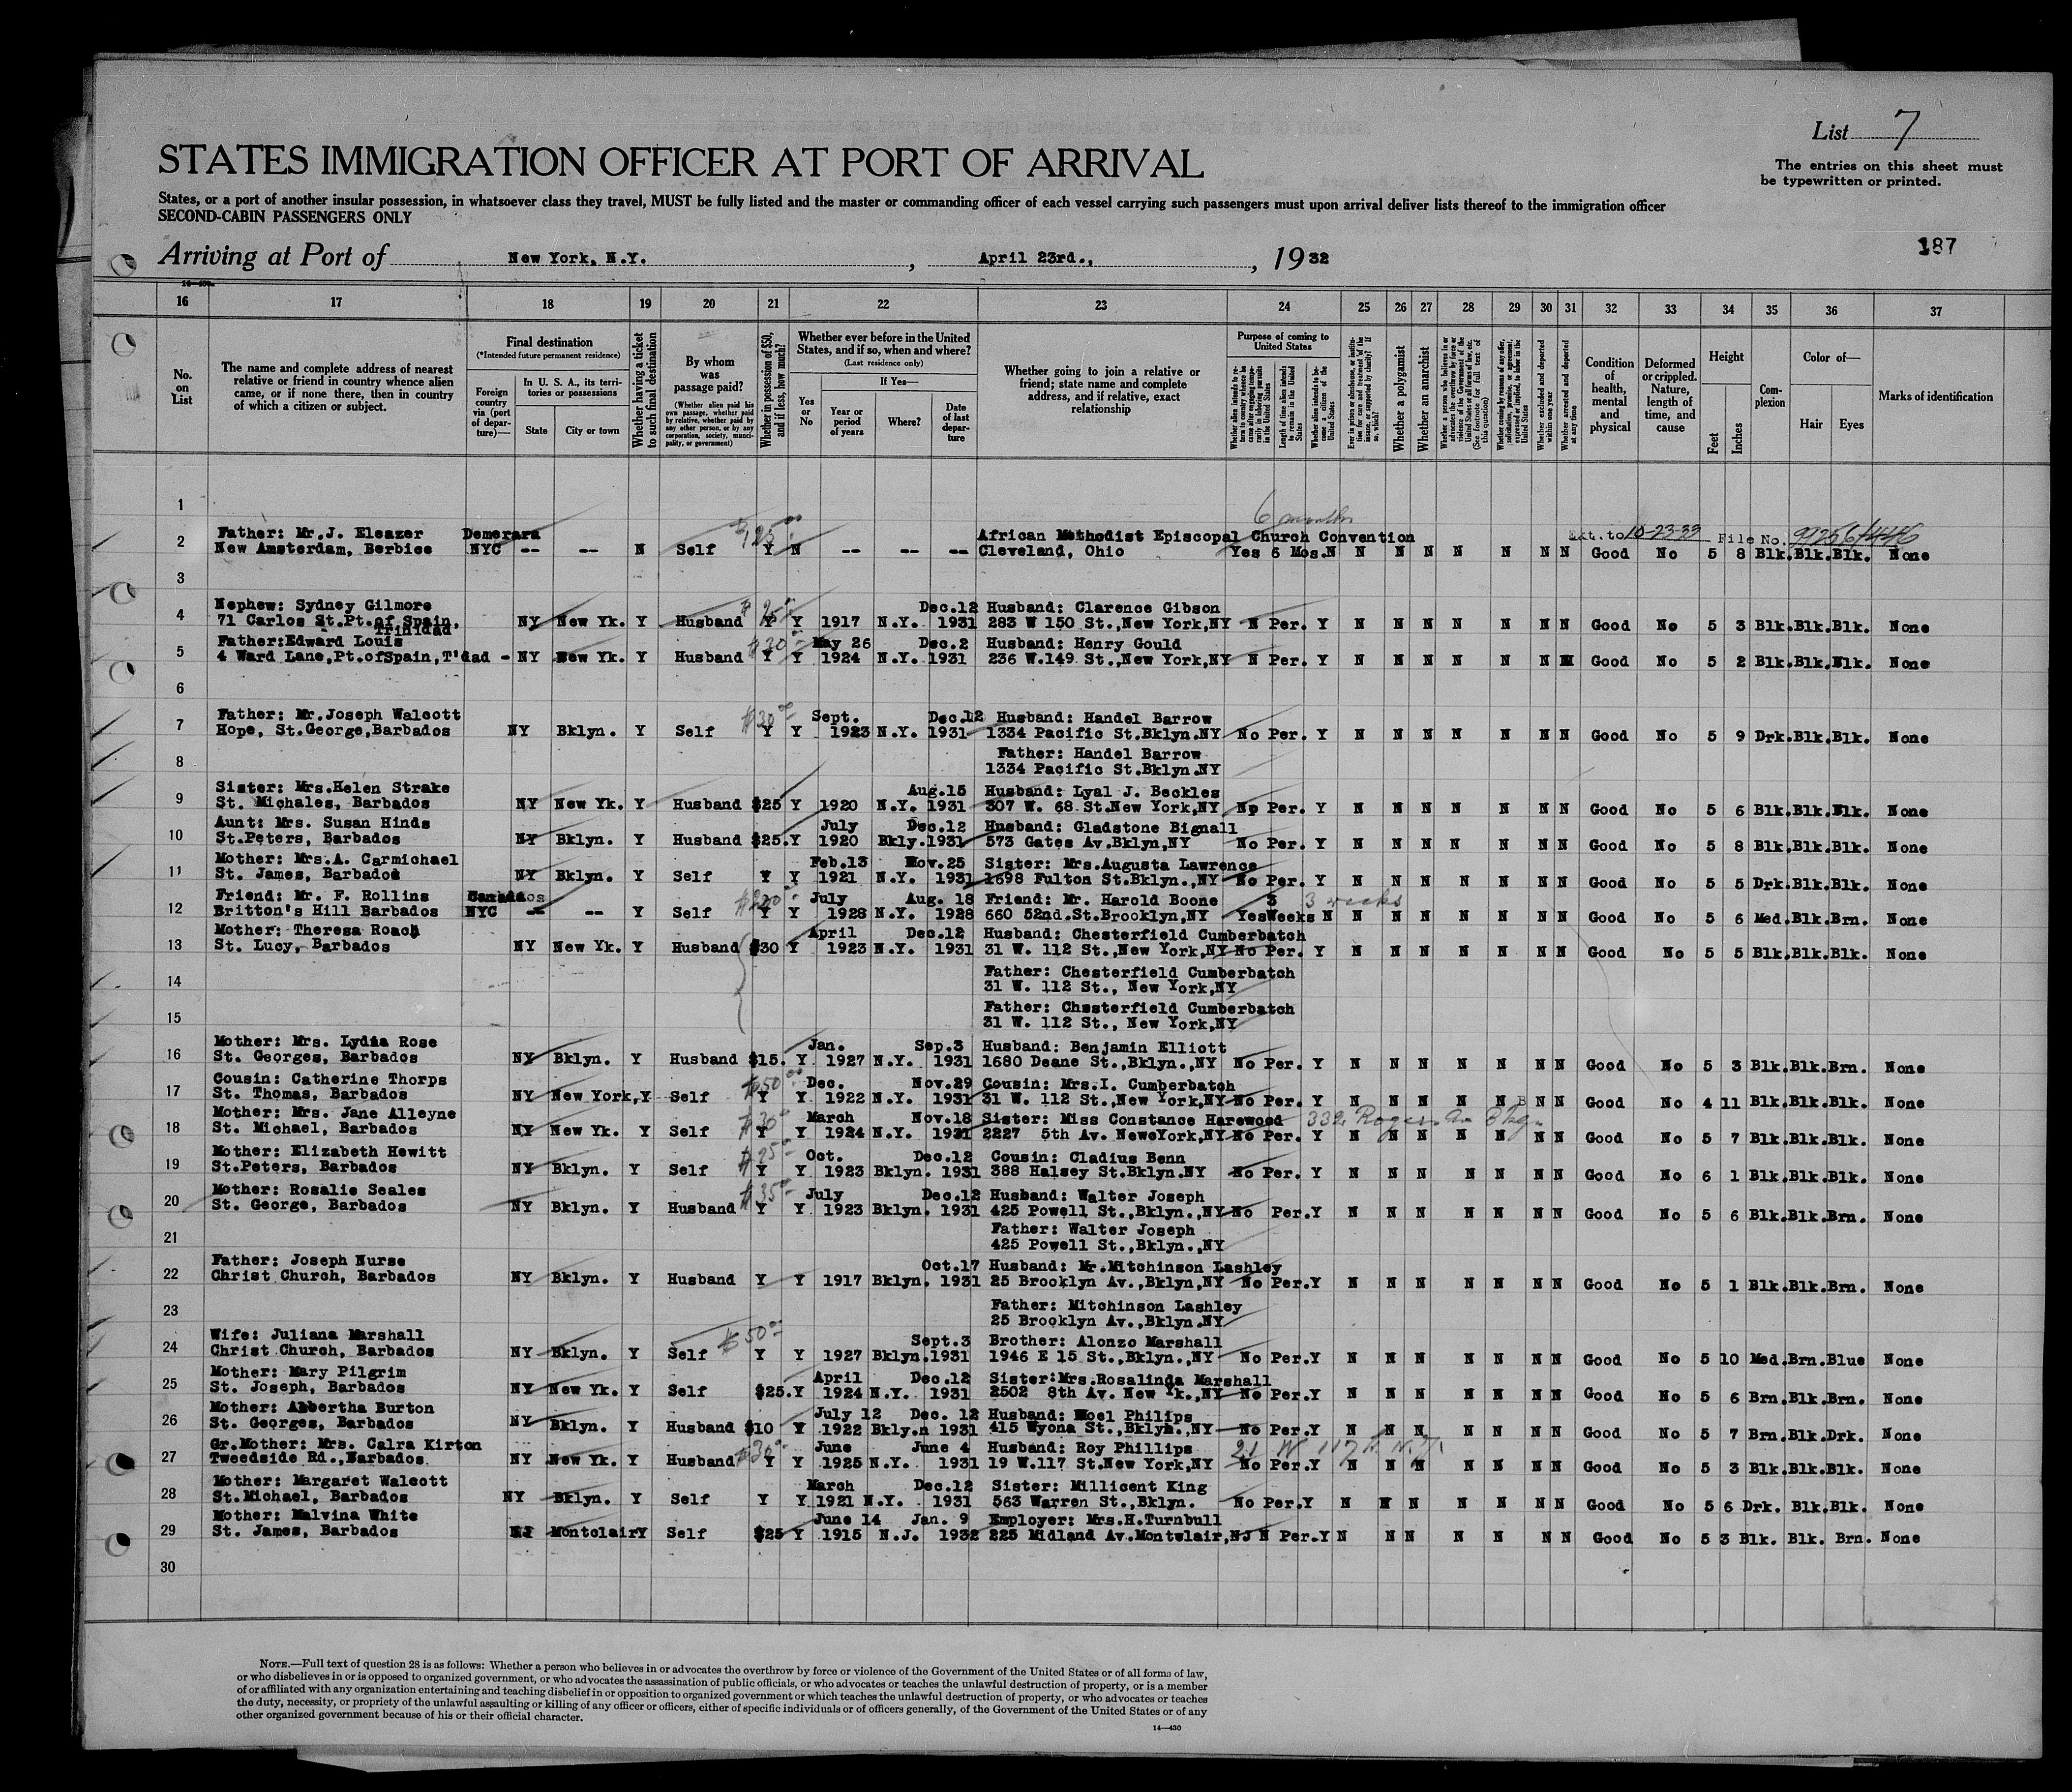 List 7
The entries on this sheet must
be typewritten or printed.
STATES IMMIGRATION OFFICER AT PORT OF ARRIVAL
States, or a port of another insular possession, in whatsoever class they travel, MUST be fully listed and the master or commanding officer of each vessel carrying such passengers must upon arrival deliver lists thereof to the immigration officer
SECOND-CABIN PASSENGERS ONLY
187
Arriving at Port of New York, N.Y. , April 23rd., , 1932
16 17 18 19 20 21 22 23 24 25 26 27 28 29 30 31 32 33 34 35 36 37
No. on List
The name and complete address of nearest relative or friend in country whence alien came, or if none there, then in country of which a citizen or subject.
Final destination
(*Intended future permanent residence)
Foreign country via (port of departure)—
In U. S. A., its territories or possessions
State
City or town
Whether having a ticket to such final destination
By whom was passage paid?
(Whether alien paid his own passage, whether paid by relative, whether paid by any other person, or by any corporation, society, municipality, or government)
Whether in possession of $50, and if less, how much?
Whether ever before in the United States, and if so, when and where?
(Last residence only)
Yes or No
If Yes—
Year or period of years
Where?
Date of last departure
Whether going to join a relative or friend; state name and complete address, and if relative, exact relationship
Purpose of coming to United States
Whether alien intends to return to country whence he came after engaging temporarily in laboring pursuits in the United States
Length of time alien intends to remain in the United States
Whether alien intends to become a citizen of the United States
Ever in prison or almshouse, or institution for care and treatment of the insane, or supported by charity? If so, which?
Whether a polygamist
Whether an anarchist
(See footnote for full text of this question)
Whether coming by reason of any offer, solicitation, promise, or agreement, expressed or implied, to labor in the United States
Whether excluded and deported within one year
Whether arrested and deported at any time
Condition of health, mental and physical
Deformed or crippled. Nature, length of time, and cause
Height
Feet
Inches
Complexion
Color of—
Hair
Eyes
Marks of identification
1
6 months
Father: Mr.J. Eleazer Demerara $125.00 African Methodist Episcopal Church Convention Ext. to 10-23-33 File No.
2 New Amsterdam, Berbice NYC -- -- N Self Y N -- -- -- Cleveland, Ohio Yes 6 Mos.N N N N N N N N Good No 5 8 Blk.Blk.Blk. None
3
Nephew: Sydney Gilmore $25 Dec.12 Husband: Clarence Gibson
4 71 Carlos St.Pt.of Spain, Trinidad NY New Yk. Y Husband Y Y 1917 N.Y. 1931 283 W 150 St.,New York,NY N Per. Y N N N N N N N Good No 5 3 Blk.Blk.Blk. None
Father:Edward Louis $30 May 26 Dec.2 Husband: Henry Gould
5 4 Ward Lane,Pt.ofSpain,T'dad - NY New Yk. Y Husband Y Y 1924 N.Y. 1931 236 W.149 St.,New York,NY N Per. Y N N N N N N N Good No 5 2 Blk.Blk.Blk. None
6
Father: Mr.Joseph Walcott $30.00 Sept. Dec.12 Husband: Handel Barrow
7 Hope, St.George,Barbados NY Bklyn. Y Self Y Y 1923 N.Y. 1931 1334 Pacific St.Bklyn.NY No Per. Y N N N N N N N Good No 5 9 Drk.Blk.Blk. None
Father: Handel Barrow
8 1334 Pacific St.Bklyn.NY
Sister: Mrs.Helen Strake Aug.15 Husband: Lyal J. Beckles
9 St. Michales, Barbados NY New Yk. Y Husband $25 Y 1920 N.Y. 1931 307 W. 68 St.New York,NY No Per. Y N N N N N N N Good No 5 6 Blk.Blk.Blk. None
Aunt: Mrs. Susan Hinds July Dec.12 Husband: Gladstone Bignall
10 St.Peters, Barbados NY Bklyn. Y Husband $25.Y 1920 Bkly.1931 573 Gates Av.Bklyn,NY No Per. Y N N N N N N N Good No 5 8 Blk.Blk.Blk. None
Mother: Mrs.A. Carmichael Feb.13 Nov.25 Sister: Mrs.Augusta Lawrence
11 St. James, Barbados NY Bklyn. Y Self Y Y 1921 N.Y. 1931 1698 Fulton St.Bklyn.,NY No Per. Y N N N N N N N Good No 5 5 Drk.Blk.Blk. None
Friend: Mr. F. Rollins Barbados July Aug. 18 Friend: Mr. Harold Boone 3 3 weeks
12 Britton's Hill Barbados NYC -- -- Y Self Y Y 1928 N.Y. 1928 660 52nd.St.Brooklyn,NY YesWeeks N N N N N N N N Good No 5 6 Med.Blk.Brn. None
Mother: Theresa Roach April Dec.12 Husband: Chesterfield Cumberbatch
13 St. Lucy, Barbados NY New Yk. Y Husband $30 Y 1923 N.Y. 1931 31 W. 112 St.,New York,NY No Per. Y N N N N N N N Good No 5 5 Blk.Blk.Blk. None
Father: Chesterfield Cumberbatch
14 31 W. 112 St., New York,NY
Father: Chesterfield Cumberbatch
15 31 W. 112 St., New York,NY
Mother: Mrs. Lydia Rose Jan. Sep.3 Husband: Benjamin Elliott
16 St. Georges, Barbados NY Bklyn. Y Husband $15. Y 1927 N.Y. 1931 1680 Deane St.,Bklyn.,NY No Per. Y N N N N N N N Good No 5 3 Blk.Blk.Brn. None
Cousin: Catherine Thorps $50.00 Dec. Nov.29 Cousin: Mrs.I. Cumberbatch
17 St. Thomas, Barbados NY New York,Y Self Y Y 1922 N.Y. 1931 31 W. 112 St.,New York,NY No Per. Y N N N N N N N Good No 4 11 Blk.Blk.Blk. None
Mother: Mrs. Jane Alleyne $30 March Nov.18 Sister: Miss Constance Harewood
18 St. Michael, Barbados NY New Yk. Y Self Y Y 1924 N.Y. 1931 2227 5th Av. NeweYork,NY No Per. Y N N N N N N N Good No 5 7 Blk.Blk.Blk. None
Mother: Elizabeth Hewitt $25.00 Oct. Dec.12 Cousin: Cladius Benn
19 St.Peters, Barbados NY Bklyn. Y Self Y Y 1923 Bklyn. 1931 388 Halsey St.Bklyn.NY No Per. Y N N N N N N N Good No 6 1 Blk.Blk.Blk. None
Mother: Rosalie Seales $35.00 July Dec.12 Husband: Walter Joseph
20 St. George, Barbados NY Bklyn. Y Husband Y Y 1923 Bklyn. 1931 425 Powell St.,Bklyn.,NY No Per.Y N N N N N N N Good No 5 6 Blk.Blk.Brn. None
Father: Walter Joseph
21 425 Powell St.,Bklyn.,NY
Father: Joseph Nurse Oct.17 Husband: Mr.Mitchinson Lashley
22 Christ Church, Barbados NY Bklyn. Y Husband Y Y 1917 Bklyn. 1931 25 Brooklyn Av.,Bklyn,NY No Per.Y N N N N N N N Good No 5 1 Blk.Blk.Brn. None
Father: Mitchinson Lashley
23 25 Brooklyn Av.,Bklyn.NY
Wife: Juliana Marshall $50.00 Sept.3 Brother: Alonzo Marshall
24 Christ Church, Barbados NY Bklyn. Y Self Y Y 1927 Bklyn.1931 1946 E 15 St.,Bklyn.,NY No Per.Y N N N N N N N Good No 5 10 Med.Brn.Blue None
Mother: Mary Pilgrim April Dec.12 Sister:Mrs.Rosalinda Marshall
25 St. Joseph, Barbados NY New Yk. Y Self $25.Y 1924 N.Y. 1931 2502 8th Av. New Yk.,NY No Per.Y N N N N N N N Good No 5 6 Brn.Blk.Brn. None
Mother: Albertha Burton July 12 Dec. 12 Husband: Noel Philips
26 St. Georges, Barbados NY Bklyn. Y Husband $10 Y 1922 Bkly.n 1931 415 Wyona St.,Bklyn.,NY No Per.Y N N N N N N N Good No 5 7 Brn.Blk.Drk. None
Gr.Mother: Mrs. Calra Kirton $30 June June 4 Husband: Roy Phillips 21 W 117th N.Y.
27 Tweedside Rd.,Barbados NY New Yk. Y Husband Y Y 1925 N.Y. 1931 19 W.117 St.New York,NY No Per.Y N N N N N N N Good No 5 3 Blk.Blk.Blk. None
Mother: Margaret Walcott March Dec.12 Sister: Millicent King
28 St.Michael, Barbados NY Bklyn. Y Self Y Y 1921 N.Y. 1931 563 Warren St.,Bklyn. No Per.Y N N N N N N N Good No 5 6 Drk. Blk.Blk. None
Mother: Malvina White June 14 Jan. 9 Employer: Mrs.H.Turnbull
29 St. James, Barbados NJ MontclairY Self $25 Y 1915 N.J. 1932 225 Midland Av.Montclair,NJ N Per.Y N N N N N N N Good No 5 3 Blk. Blk. Brn. None
30
NOTE.—Full text of question 28 is as follows: Whether a person who believes in or advocates the overthrow by force or violence of the Government of the United States or of all forms of law,
or who disbelieves in or is opposed to organized government, or who advocates the assassination of public officials, or who advocates or teaches the unlawful destruction of property, or is a member
of or affiliated with any organization entertaining and teaching disbelief in or opposition to organized government or which teaches the unlawful destruction of property, or who advocates or teaches
the duty, necessity, or propriety of the unlawful assaulting or killing of any officer or officers, either of specific individuals or of officers generally, of the Government of the United States or of any
other organized government because of his or their official character.
14—430